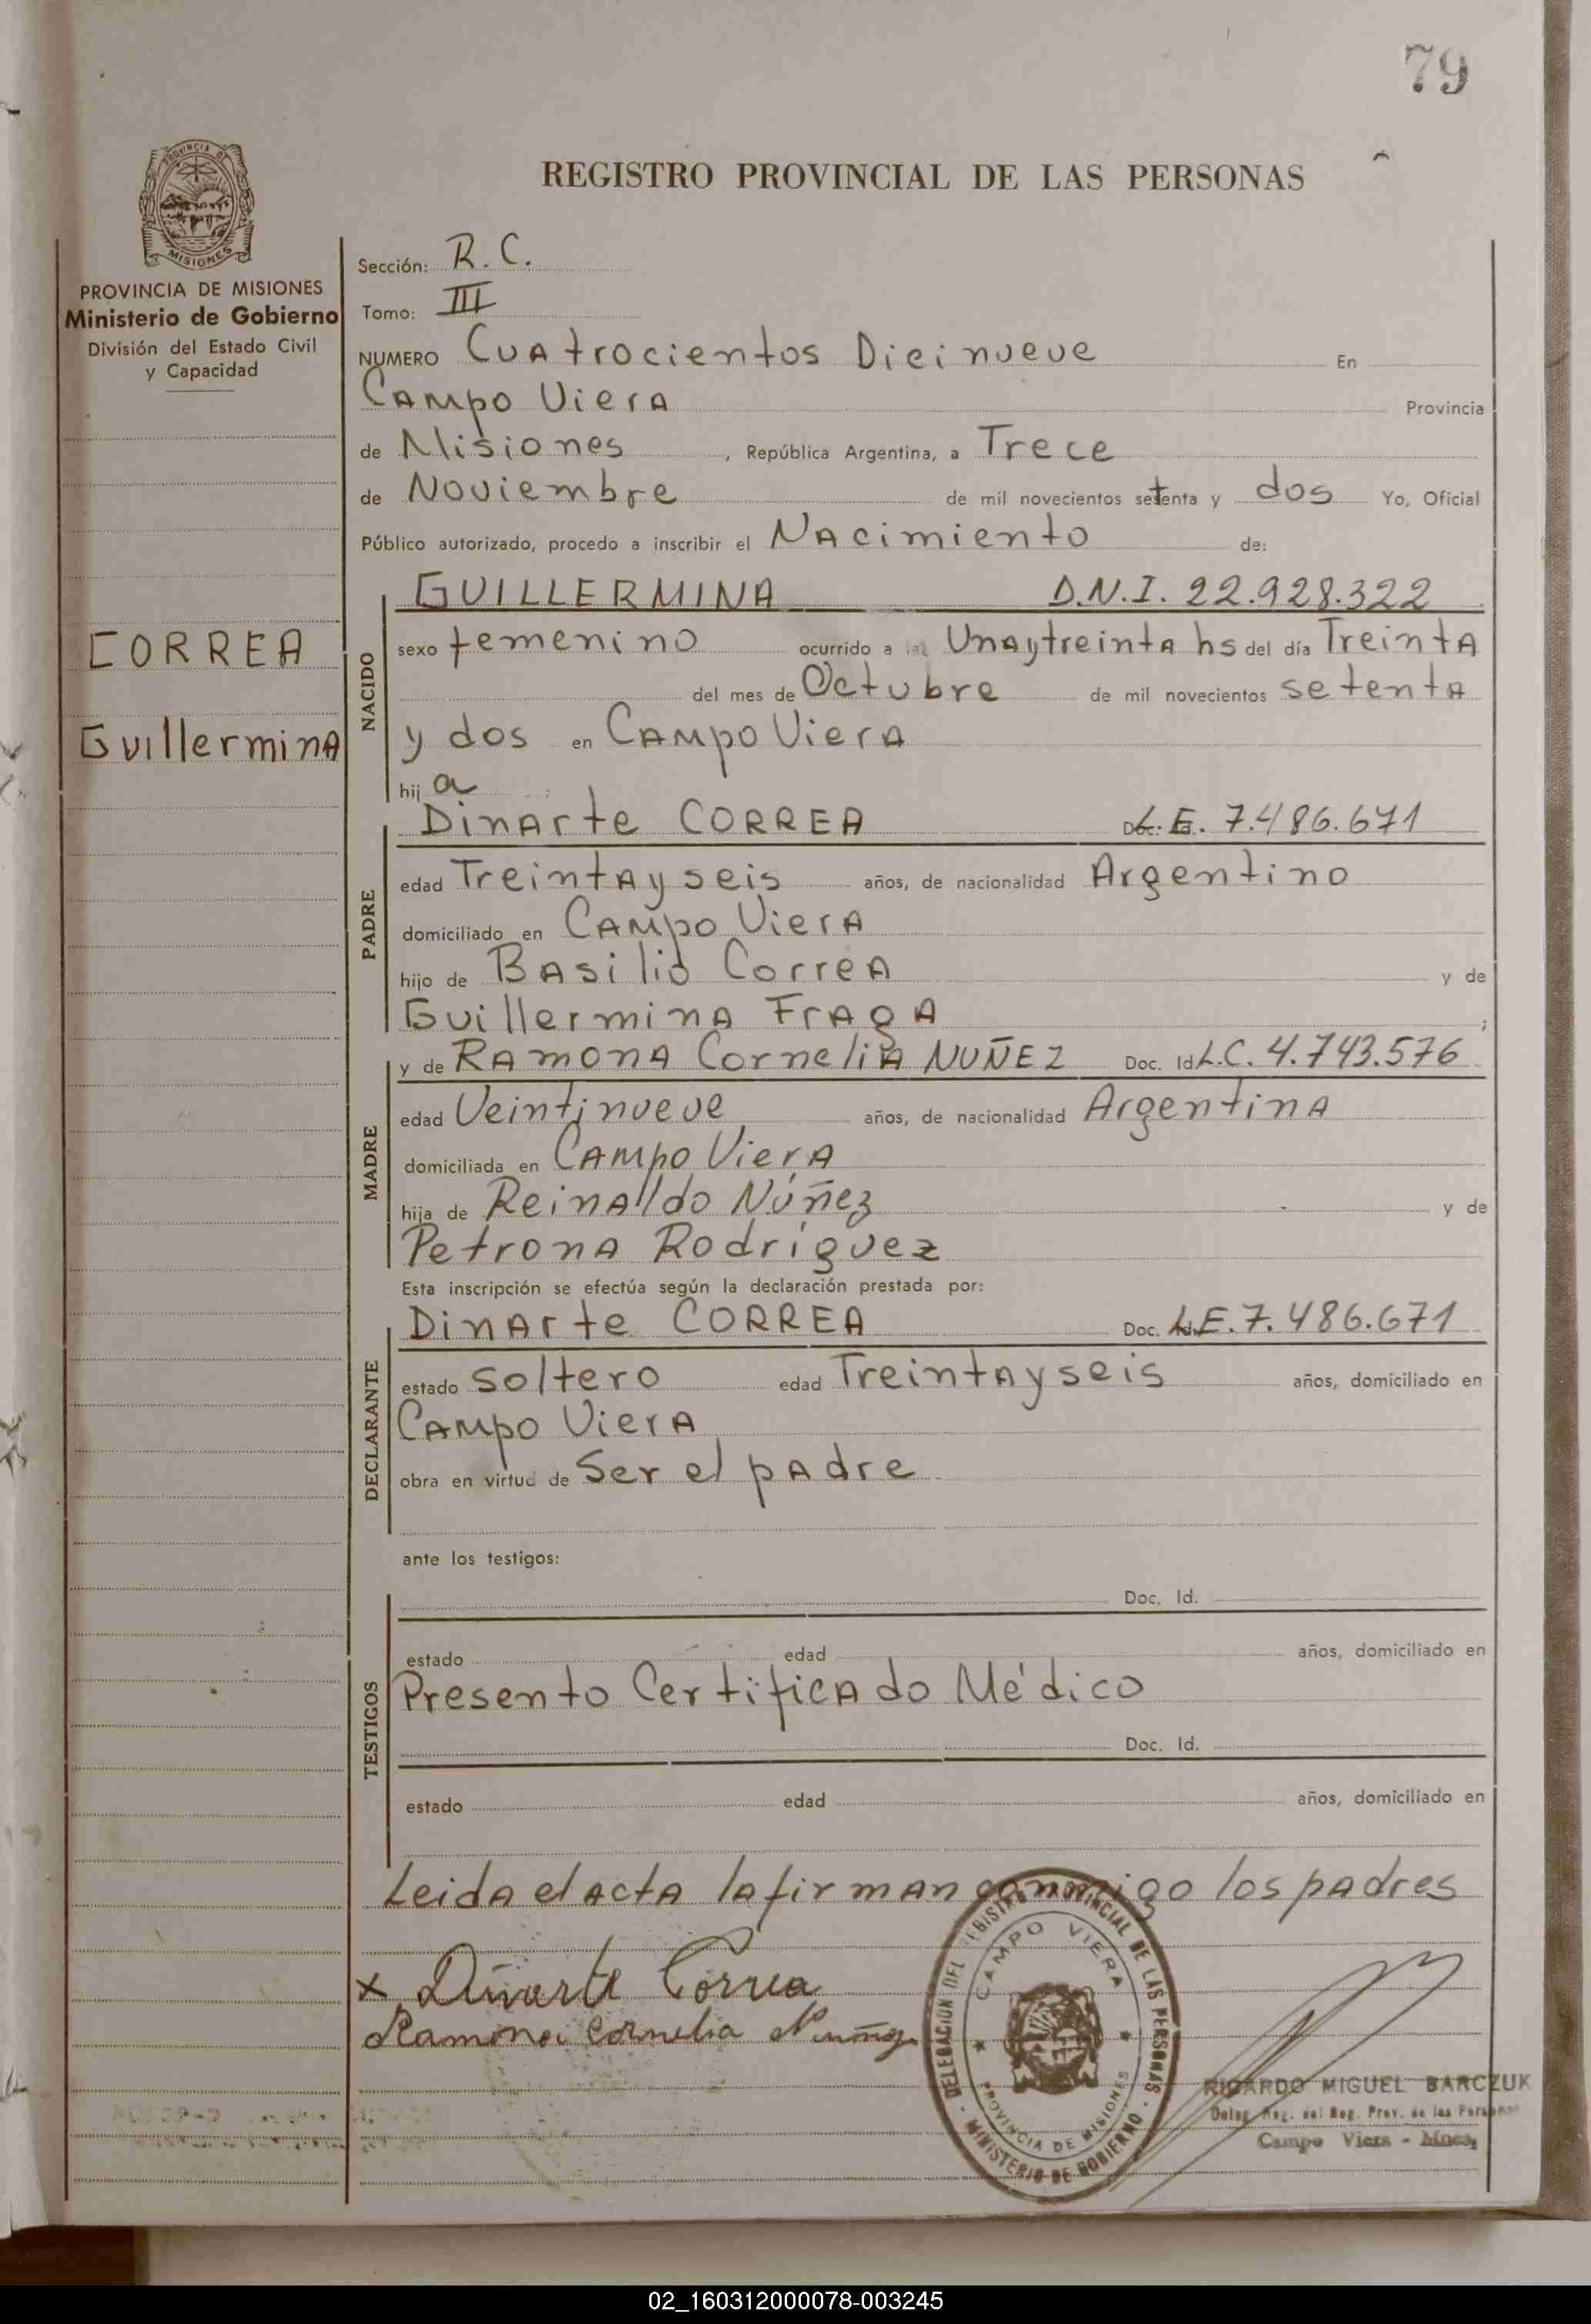 79
REGISTRO PROVINCIAL DE LAS PERSONAS
PROVINCIA DE MISIONES
PROVINCIA DE MISIONES
Ministerio de Gobierno
División del Estado Civil
y Capacidad
CORREA
Guillermina
Sección: R.C.
Tomo: III
NUMERO Cuatrocientos Diecinueve En
Campo Viera Provincia
de Misiones, República Argentina, a Trece
de Noviembre de mil novecientos setenta y dos Yo, Oficial
Público autorizado, procedo a inscribir el Nacimiento de:
NACIDO
GUILLERMINA D.N.I. 22.928.322
sexo femenino ocurrido a las Unaytreinta hs del día Treinta
del mes de Octubre de mil novecientos setenta
y dos en Campo Viera
hij a ;
PADRE
Dinarte CORREA Doc. L.E. 7.486.671
edad Treintayseis años, de nacionalidad Argentino
domiciliado en Campo Viera
hijo de Basilio Correa y de
Guillermina Fraga ;
MADRE
y de Ramona Cornelia NUÑEZ Doc. Id. L.C. 4.743.576
edad Veintinueve años, de nacionalidad Argentina
domiciliada en Campo Viera
hija de Reinaldo Núñez y de
Petrona Rodríguez
Esta inscripción se efectúa según la declaración prestada por:
DECLARANTE
Dinarte CORREA Doc. Id. L.E. 7.486.671
estado soltero edad Treintayseis años, domiciliado en
Campo Viera
obra en virtud de Ser el padre
ante los testigos:
TESTIGOS
Doc. Id.
estado edad años, domiciliado en
Presento Certificado Médico
Doc. Id.
estado edad años, domiciliado en
Leida el acta la firman conmigo los padres
x Dinarte Correa
Ramona Cornelia Nuñez
DELEGACION DEL REGISTRO PROVINCIAL DE LAS PERSONAS - MINISTERIO DE GOBIERNO -
CAMPO VIERA PROVINCIA DE MISIONES
RICARDO MIGUEL BARCZUK
Deleg. Reg. del Reg. Prov. de las Personas
Campo Viera - Mnes.
02_160312000078-003245